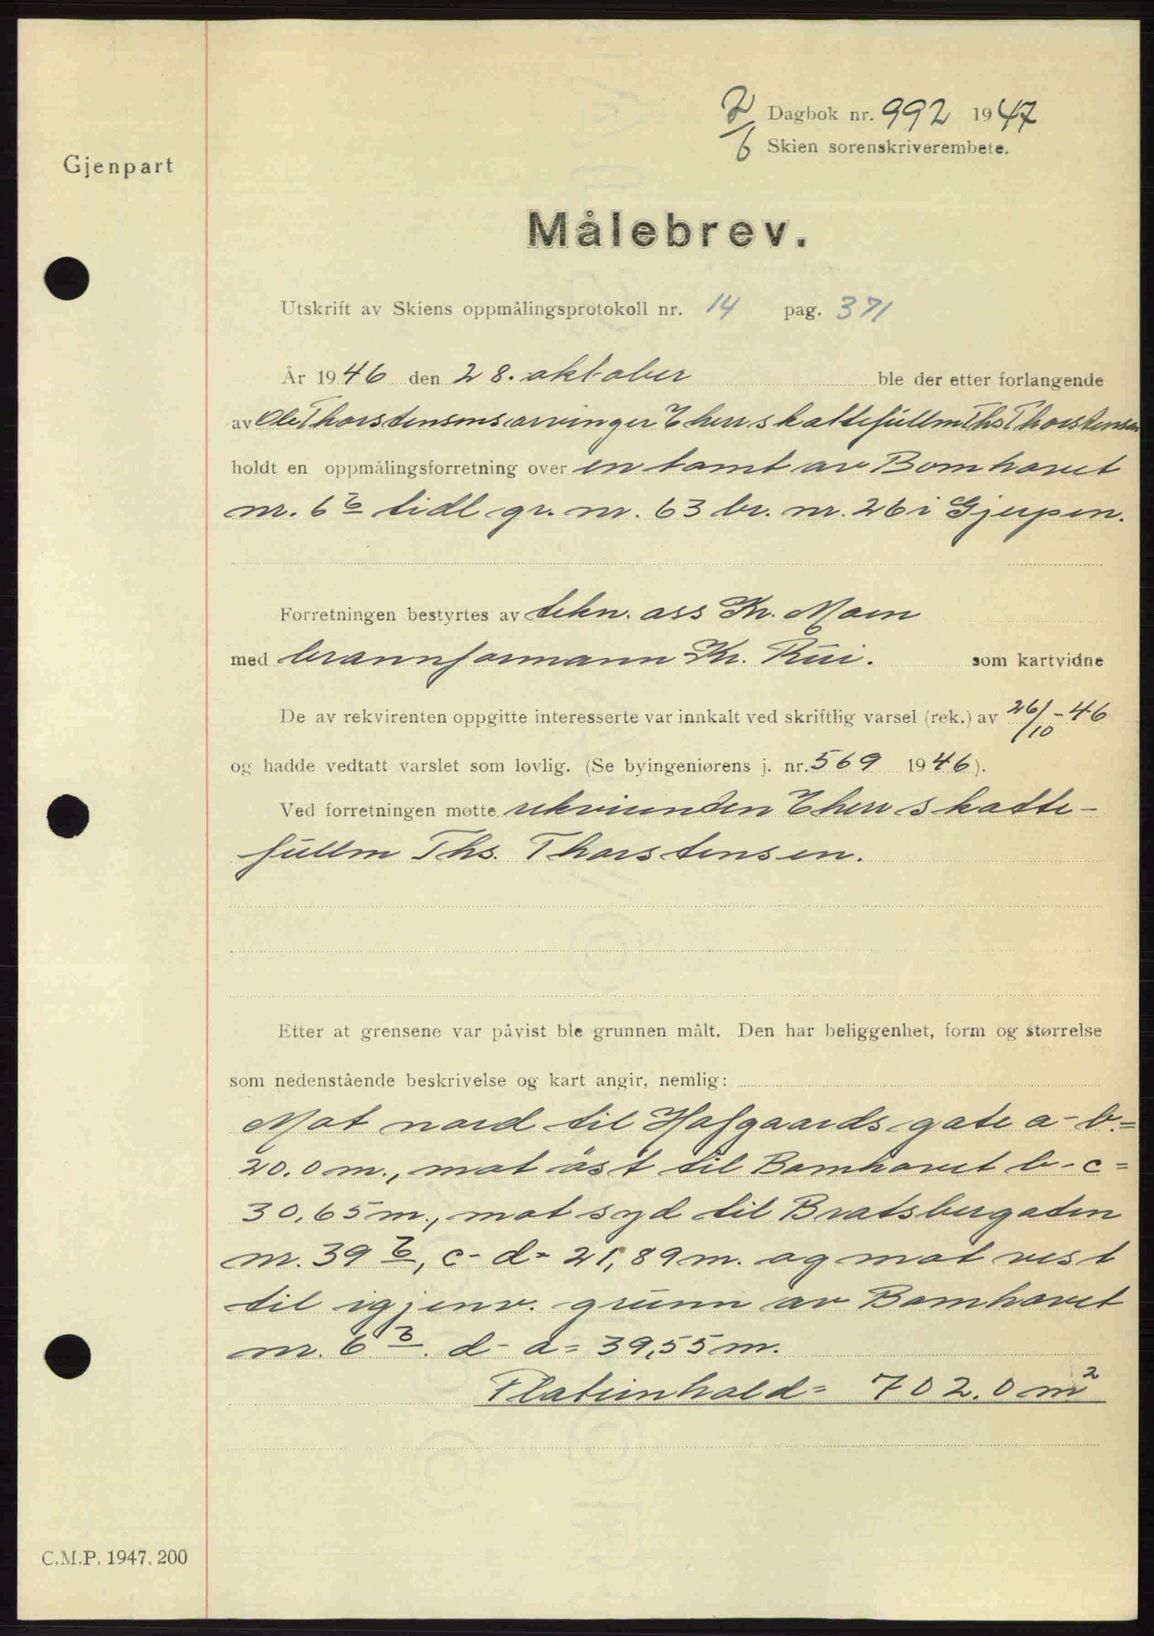 2/6 Dagbok nr. 992 1947
Skien sorenskriverembete.
Gjenpart
Målebrev.
Utskrift av Skiens oppmålingsprotokoll nr. 14 pag. 371
År 1946 den 28. oktober ble der etter forlangende
av Ole Thorstensens arvinger v/herr skattefullm Ths Thorstensen
holdt en oppmålingsforretning over en tomt av Bomhavet
nr. 6 b tidl gr. nr. 63 br. nr. 26 i Gjerpen.
Forretningen bestyrtes av tekn. ass Kr. Moen
med brannformann Kr. Rui. som kartvidne
De av rekvirenten oppgitte interesserte var innkalt ved skriftlig varsel (rek.) av 26/10-46
og hadde vedtatt varslet som lovlig. (Se byingeniørens j. nr. 569 1946).
Ved forretningen møtte rekvirenten v/herr skatte-
fullm Ths. Thorstensen.
Etter at grensene var påvist ble grunnen målt. Den har beliggenhet, form og størrelse
som nedenstående beskrivelse og kart angir, nemlig:
Mot nord til Hofgaards gate a-b.=
20.0 m., mot øst til Bomhavet b-c=
30,65 m., mot syd til Bratsbergaten
nr. 39 b, c-d= 21,89 m. og mot vest
til igjenv. grunn av Bomhavet
nr. 6 b. d-a= 39,55 m.
Flateinhold= 702.0 m²
C.M.P. 1947. 200